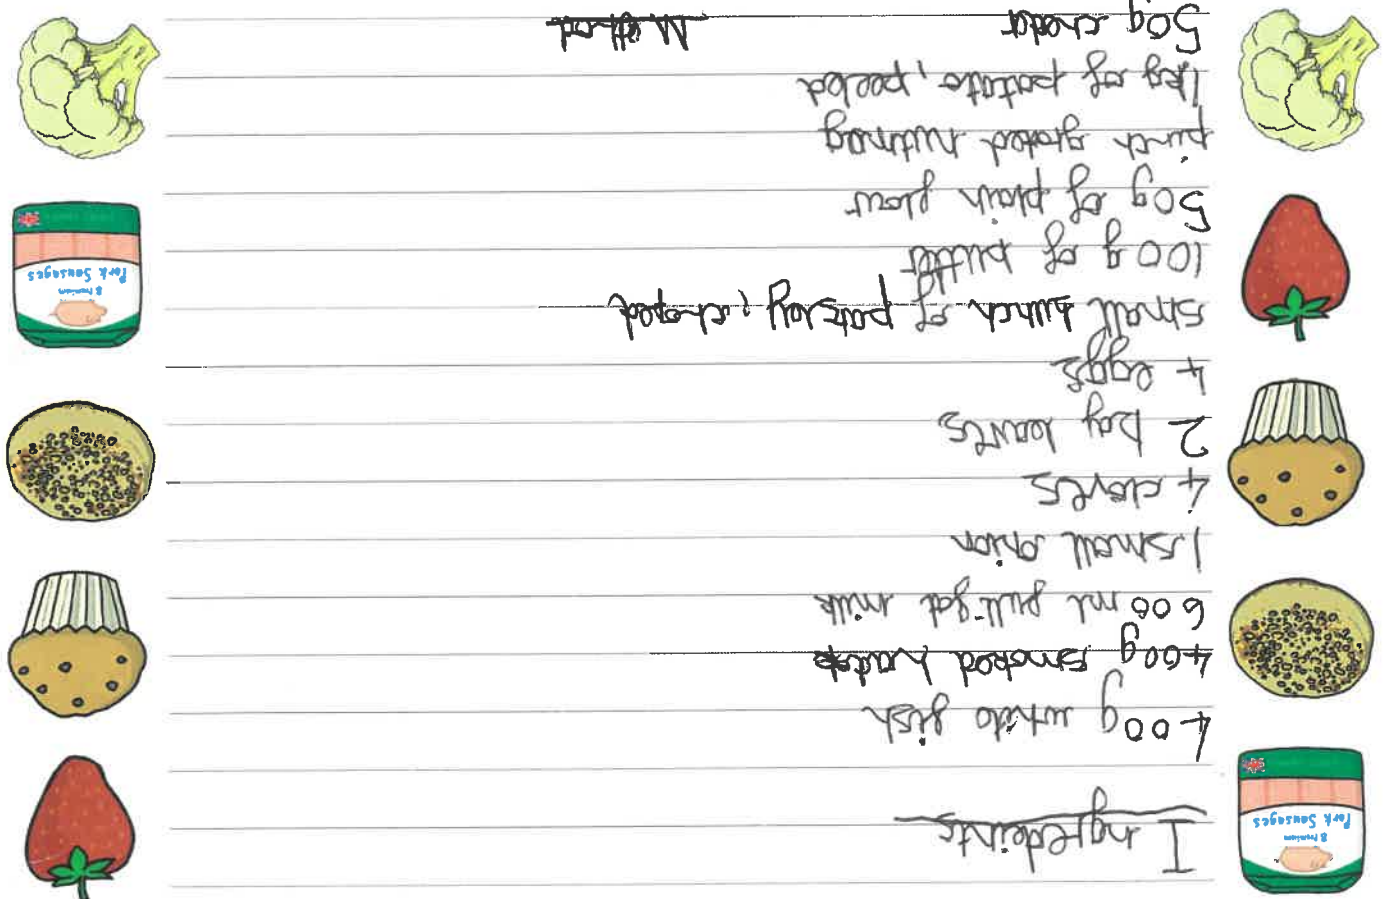 Ingredeints
400g white fish
400g smoked
600 ml full fat milk
1 small onion
4 cloves
2 bay leaves
4 eggs
small bunch of parsley, choped
100 g of butter
50g of plain flour
pinch grated nutmeg
1kg of potato, peeled
50g chedar Method
8 Premium
Pork Sausages
8 Premium
Pork Sausages